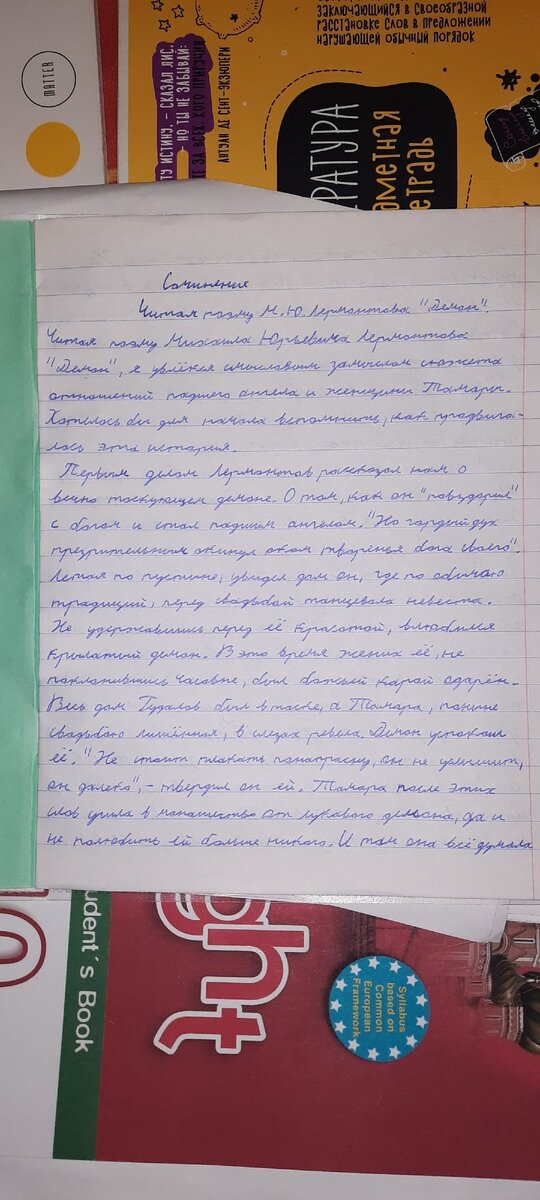 MATTER
ТУ ИСТИНУ, – СКАЗАЛ ЛИС,
НО ТЫ НЕ ЗАБЫВАЙ:
ТЕ ЗА ВСЕХ, КОГО ПРИРУЧИЛ
АНТУАН ДЕ СЕНТ-ЭКЗЮПЕРИ
ЗАКЛЮЧАЮЩИЙСЯ В СВОЕОБРАЗНОЙ
РАССТАНОВКЕ СЛОВ В ПРЕДЛОЖЕНИИ
НАРУШАЮЩЕЙ ОБЫЧНЫЙ ПОРЯДОК
РАТУРА
МЕТНАЯ
ЕТРАДЬ
Сочинение
Читая поэму М.Ю. Лермонтова "Демон".
Читая поэму Михаила Юрьевича Лермонтова
"Демон", я увлёкся смысловым замыслом сюжета
отношений падшего ангела и женщины Тамары.
Хотелось бы для начала вспомнить, как продвига-
лась эта история.
Первым делом Лермонтов рассказал нам о
вечно тоскующем демоне. О том, как он "повздорил"
с богом и стал падшим ангелом. "Но гордый дух
презрительным окинул оком творенье бога своего".
Летая по пустыне, увидел дом он, где по обычаю
традиций, перед свадьбой танцевала невеста.
Не удержавшись перед её красотой, влюбился
крылатый демон. В это время жених её, не
поклонившись часовне, был божьей карой одарён.
Весь дом Гудалов был в тоске, а Тамара, поныне
свадьбою лишённая, в слезах ревела. Демон успокоил
её. "Не стоит плакать понапрасну, он не услышит,
он далеко", – твердил он ей. Тамара после этих
слов ушла в монашество от лукавого демона, да и
не полюбить ей больше никого. И там она всё думала
tudent´s Book
ght
Syllabus
based on
Common
European
Framework